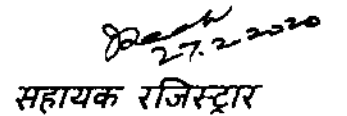 27.2.2020
सहायक रजिस्ट्रार